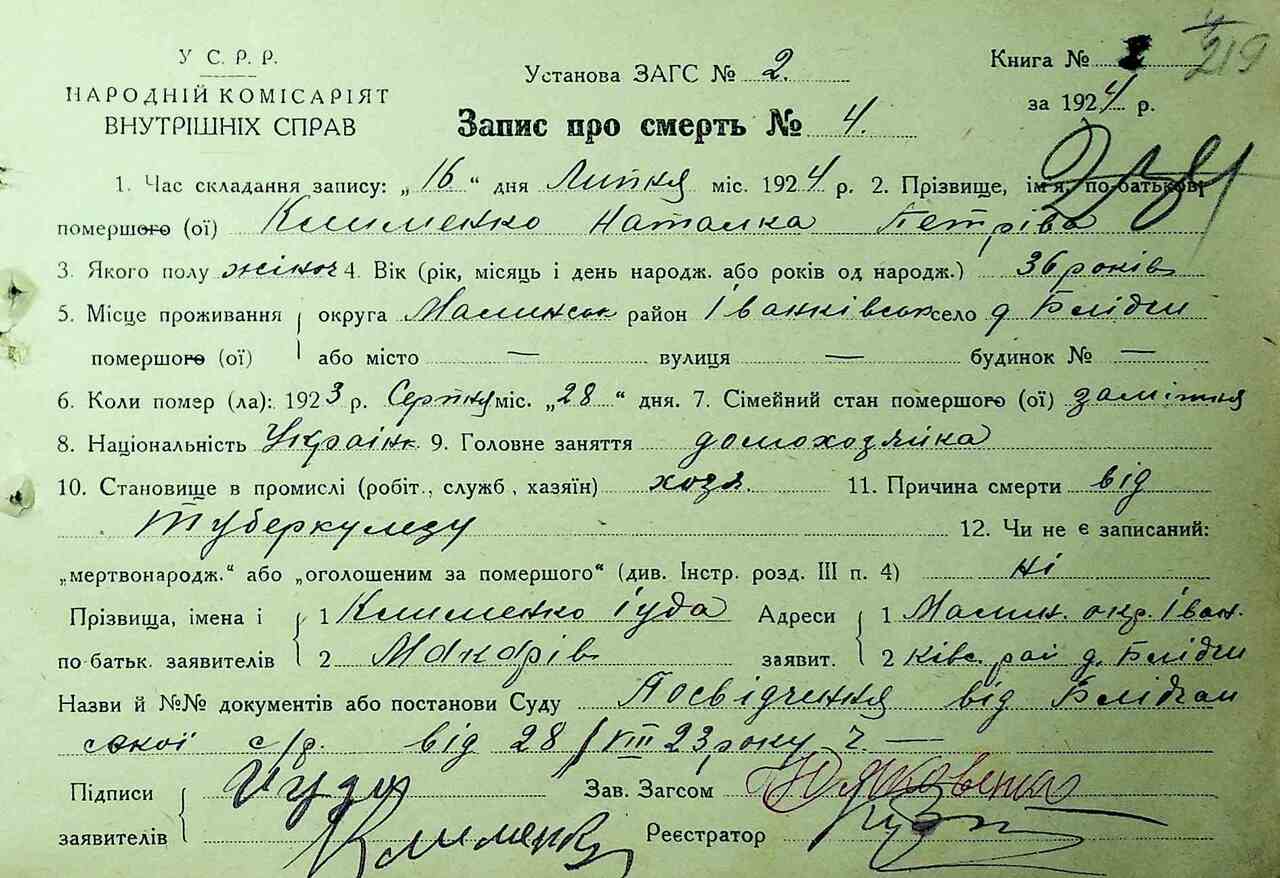 У С. Р. Р.
НАРОДНІЙ КОМІСАРІЯТ
ВНУТРІШНІХ СПРАВ
Установа ЗАГС № 2.
Книга №
219
за 1924 р.
Запис про смерть № 4.
1. Час складання запису: „16“ дня Липня міс. 1924 р. 2. Прізвище, ім'я, по-батькові
помершого (ої) Клименко Наталка Петріва
3. Якого полу жіноч 4. Вік (рік, місяць і день народж. або років од народж.) 36 років
5. Місце проживання округа Малинськ район Іванківськ село д Блідчи
помершого (ої) або місто — вулиця — будинок № —
6. Коли помер (ла): 1923 р. Серпня міс. „28“ дня. 7. Сімейний стан помершого (ої) заміжня
8. Національність Україн. 9. Головне заняття домохозяйка
10. Становище в промислі (робіт., служб, хазяїн) хозя. 11. Причина смерти від
туберкулезу 12. Чи не є записаний:
„мертвонародж.“ або „оголошеним за помершого“ (див. Інстр. розд. III п. 4) ні
Прізвища, імена і 1 Клименко Іуда Адреси 1 Малин. окр. Іван.
по батьк. заявителів 2 Макарів заявит. 2 ківс. рай д. Блідчи
Назви й №№ документів або постанови Суду Посвідчення від Блідчан
ської с/р. від 28/VIII 23 року ч. —
Підписи Иуда Зав. Загсом
заявителів Клименко Реєстратор